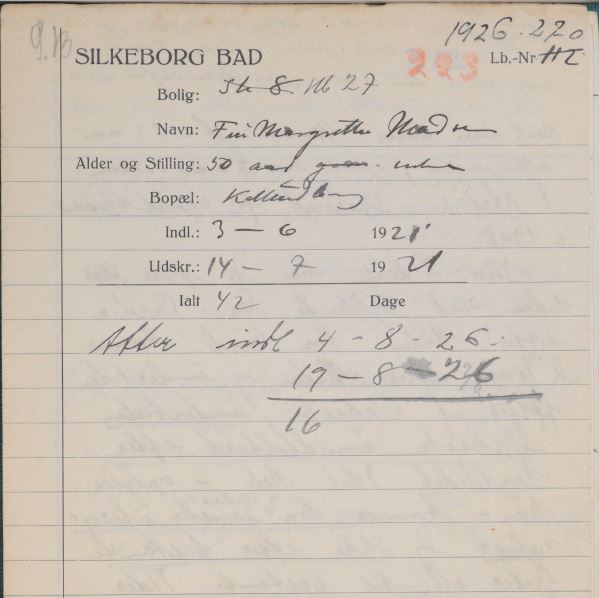 1926-220
SILKEBORG BAD
223 Lb.-Nr
Bolig: St 8. Nb 27
Navn: Fru Margrethe Madsen
Alder og Stilling: 50 aar
Bopæl: Kallundborg
Indl.: 3 - 6 1921
Udskr.: 14 - 7 1921
Ialt 42 Dage
Atter indl 4 - 8 - 26.
19 - 8 - 26
16